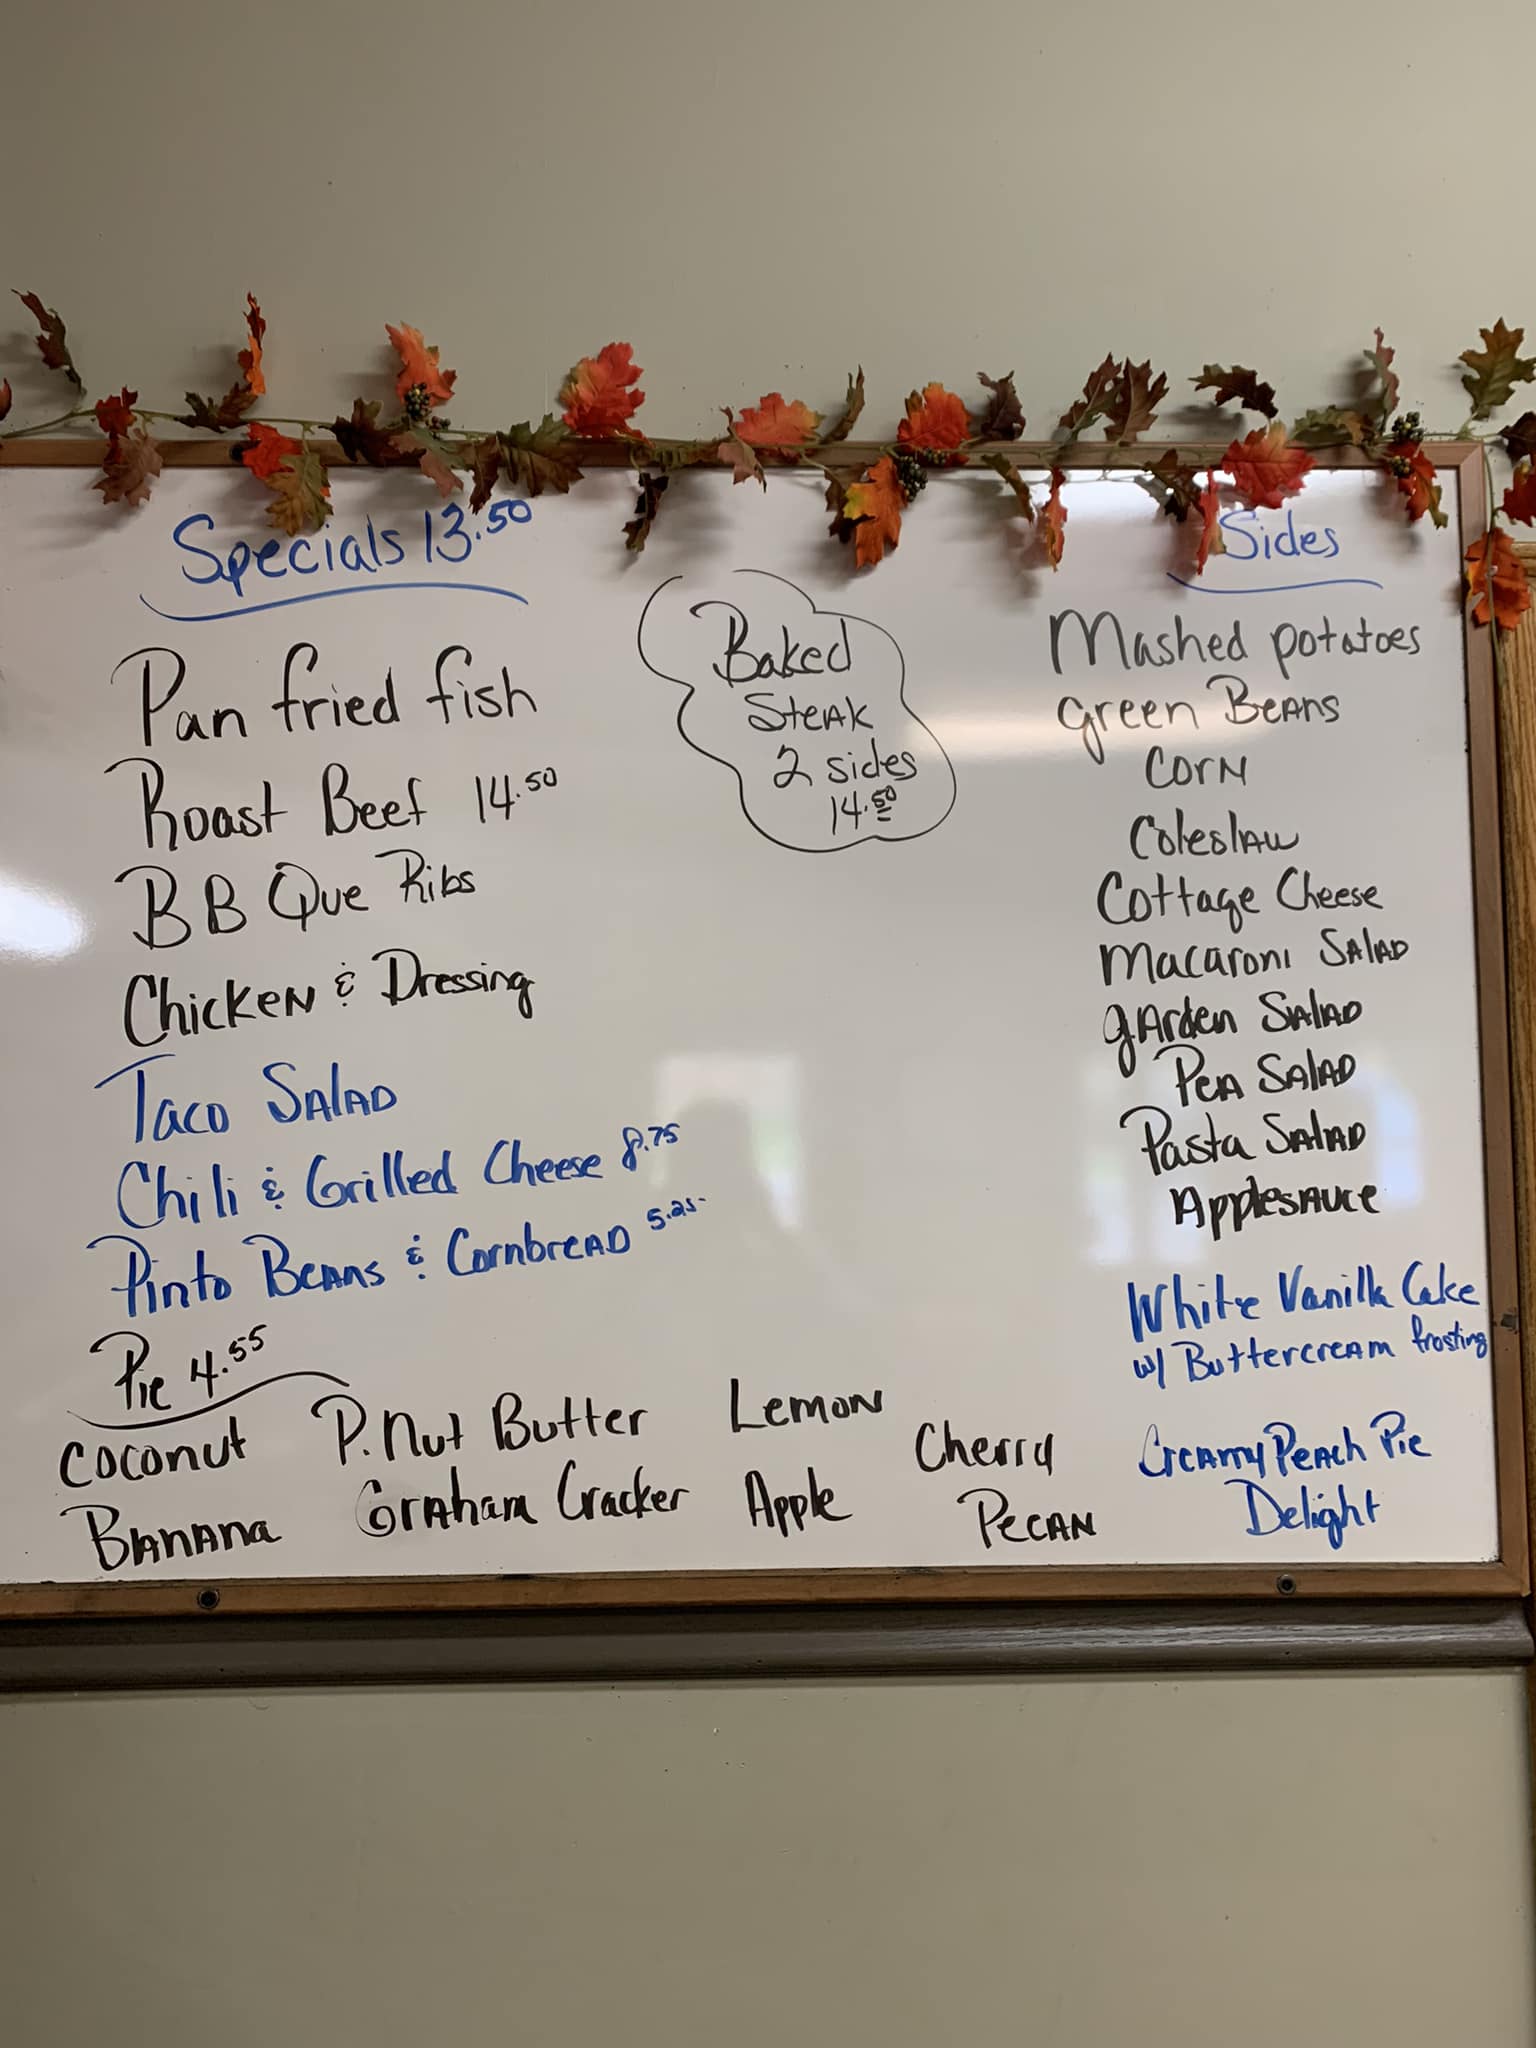 Specials 13.50
Pan fried fish
Roast Beef 14.50
B B Que Ribs
Chicken & Dressing
Taco Salad
Chili & Grilled Cheese 8.75
Pinto Beans & Cornbread 5.25
Baked
Steak
2 sides
14.50
Sides
Mashed potatoes
green Beans
Corn
Coleslaw
Cottage Cheese
Macaroni Salad
garden Salad
Pea Salad
Pasta Salad
Applesauce
White Vanilla Cake
w/ Buttercream frosting
Creamy Peach Pie
Delight
Pie 4.55
Coconut P.Nut Butter Lemon Cherry
Banana Graham Cracker Apple Pecan